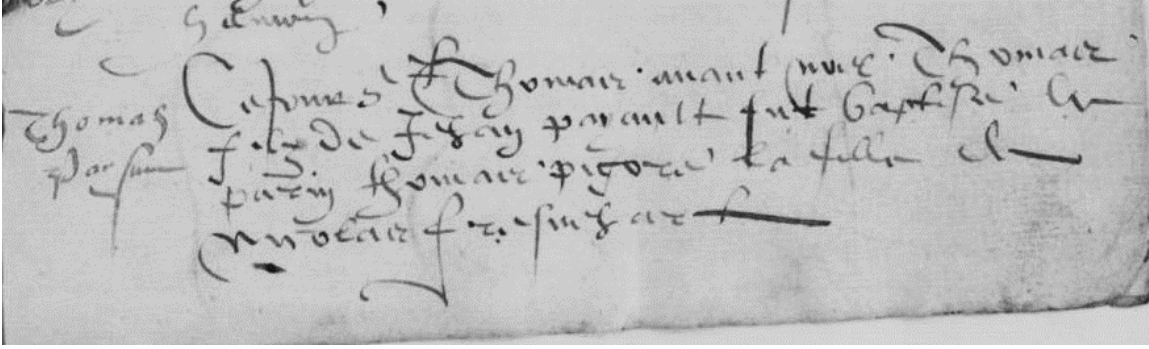 Thomas
Le jour St Thomas avant noel Thomas
filz de Jehan parault fut baptisé le
parin thomas pigore la fille de
nicolas fresinhart